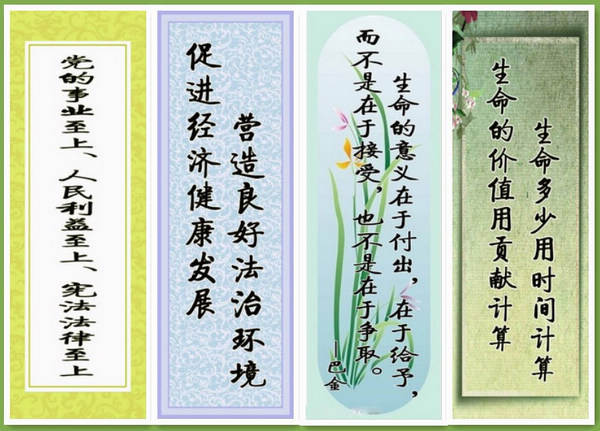 党的事业至上、人民利益至上、宪法法律至上
营造良好法治环境
促进经济健康发展
生命的意义在于付出，在于给予，
而不是在于接受，也不是在于争取。
—巴金
生命多少用时间计算
生命的价值用贡献计算